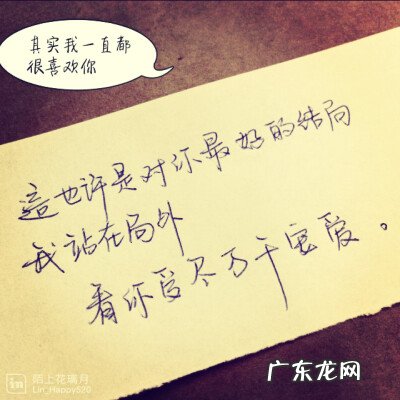 其实我一直都
很喜欢你
這也许是对你最好的结局
我站在局外
看你受尽万千宠爱。
in 陌上花瑀月
Lin_Happy520
广东龙网